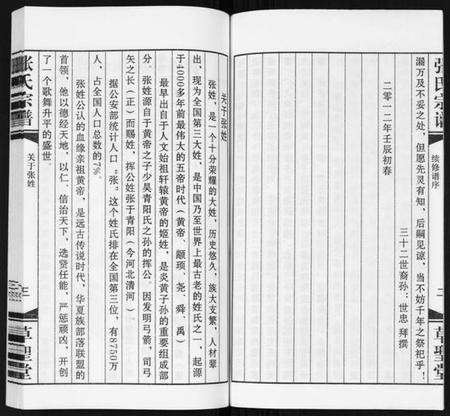 张氏宗谱
续修谱序
二
草圣堂
漏万及不妥之处，但愿先灵有知，后嗣见谅，当不妨千年之祭祀乎！
二零一二年壬辰初春
三十二世裔孙：世忠 拜撰
关于张姓
张姓，是一个十分荣耀的大姓，历史悠久，族大支繁，人材辈
出，现为全国第三大姓，是中国乃至世界上最古老的姓氏之一，起源
于4000多年前最伟大的五帝时代（黄帝、颛顼、尧、舜、禹）
最早出自于人文始祖轩辕黄帝的姬姓，是炎黄子孙的重要组成部
分。张姓源自于黄帝之子少昊青阳氏之孙的挥公。因发明弓箭，司弓
矢之长（正）而赐姓，挥公姓张于青阳（今河北清河）
据公安部统计人口“张”这个姓氏排在全国第三位，有8750万
人，占全国人口总数的7%。
张姓公认的血缘亲祖黄帝，是远古传说时代，华夏族部落联盟的
首领，他以德经天地，以仁、信治天下，选贤任能，严惩顽凶，开创
了一个歌舞升平的盛世。
张氏宗谱
关于张姓
草圣堂